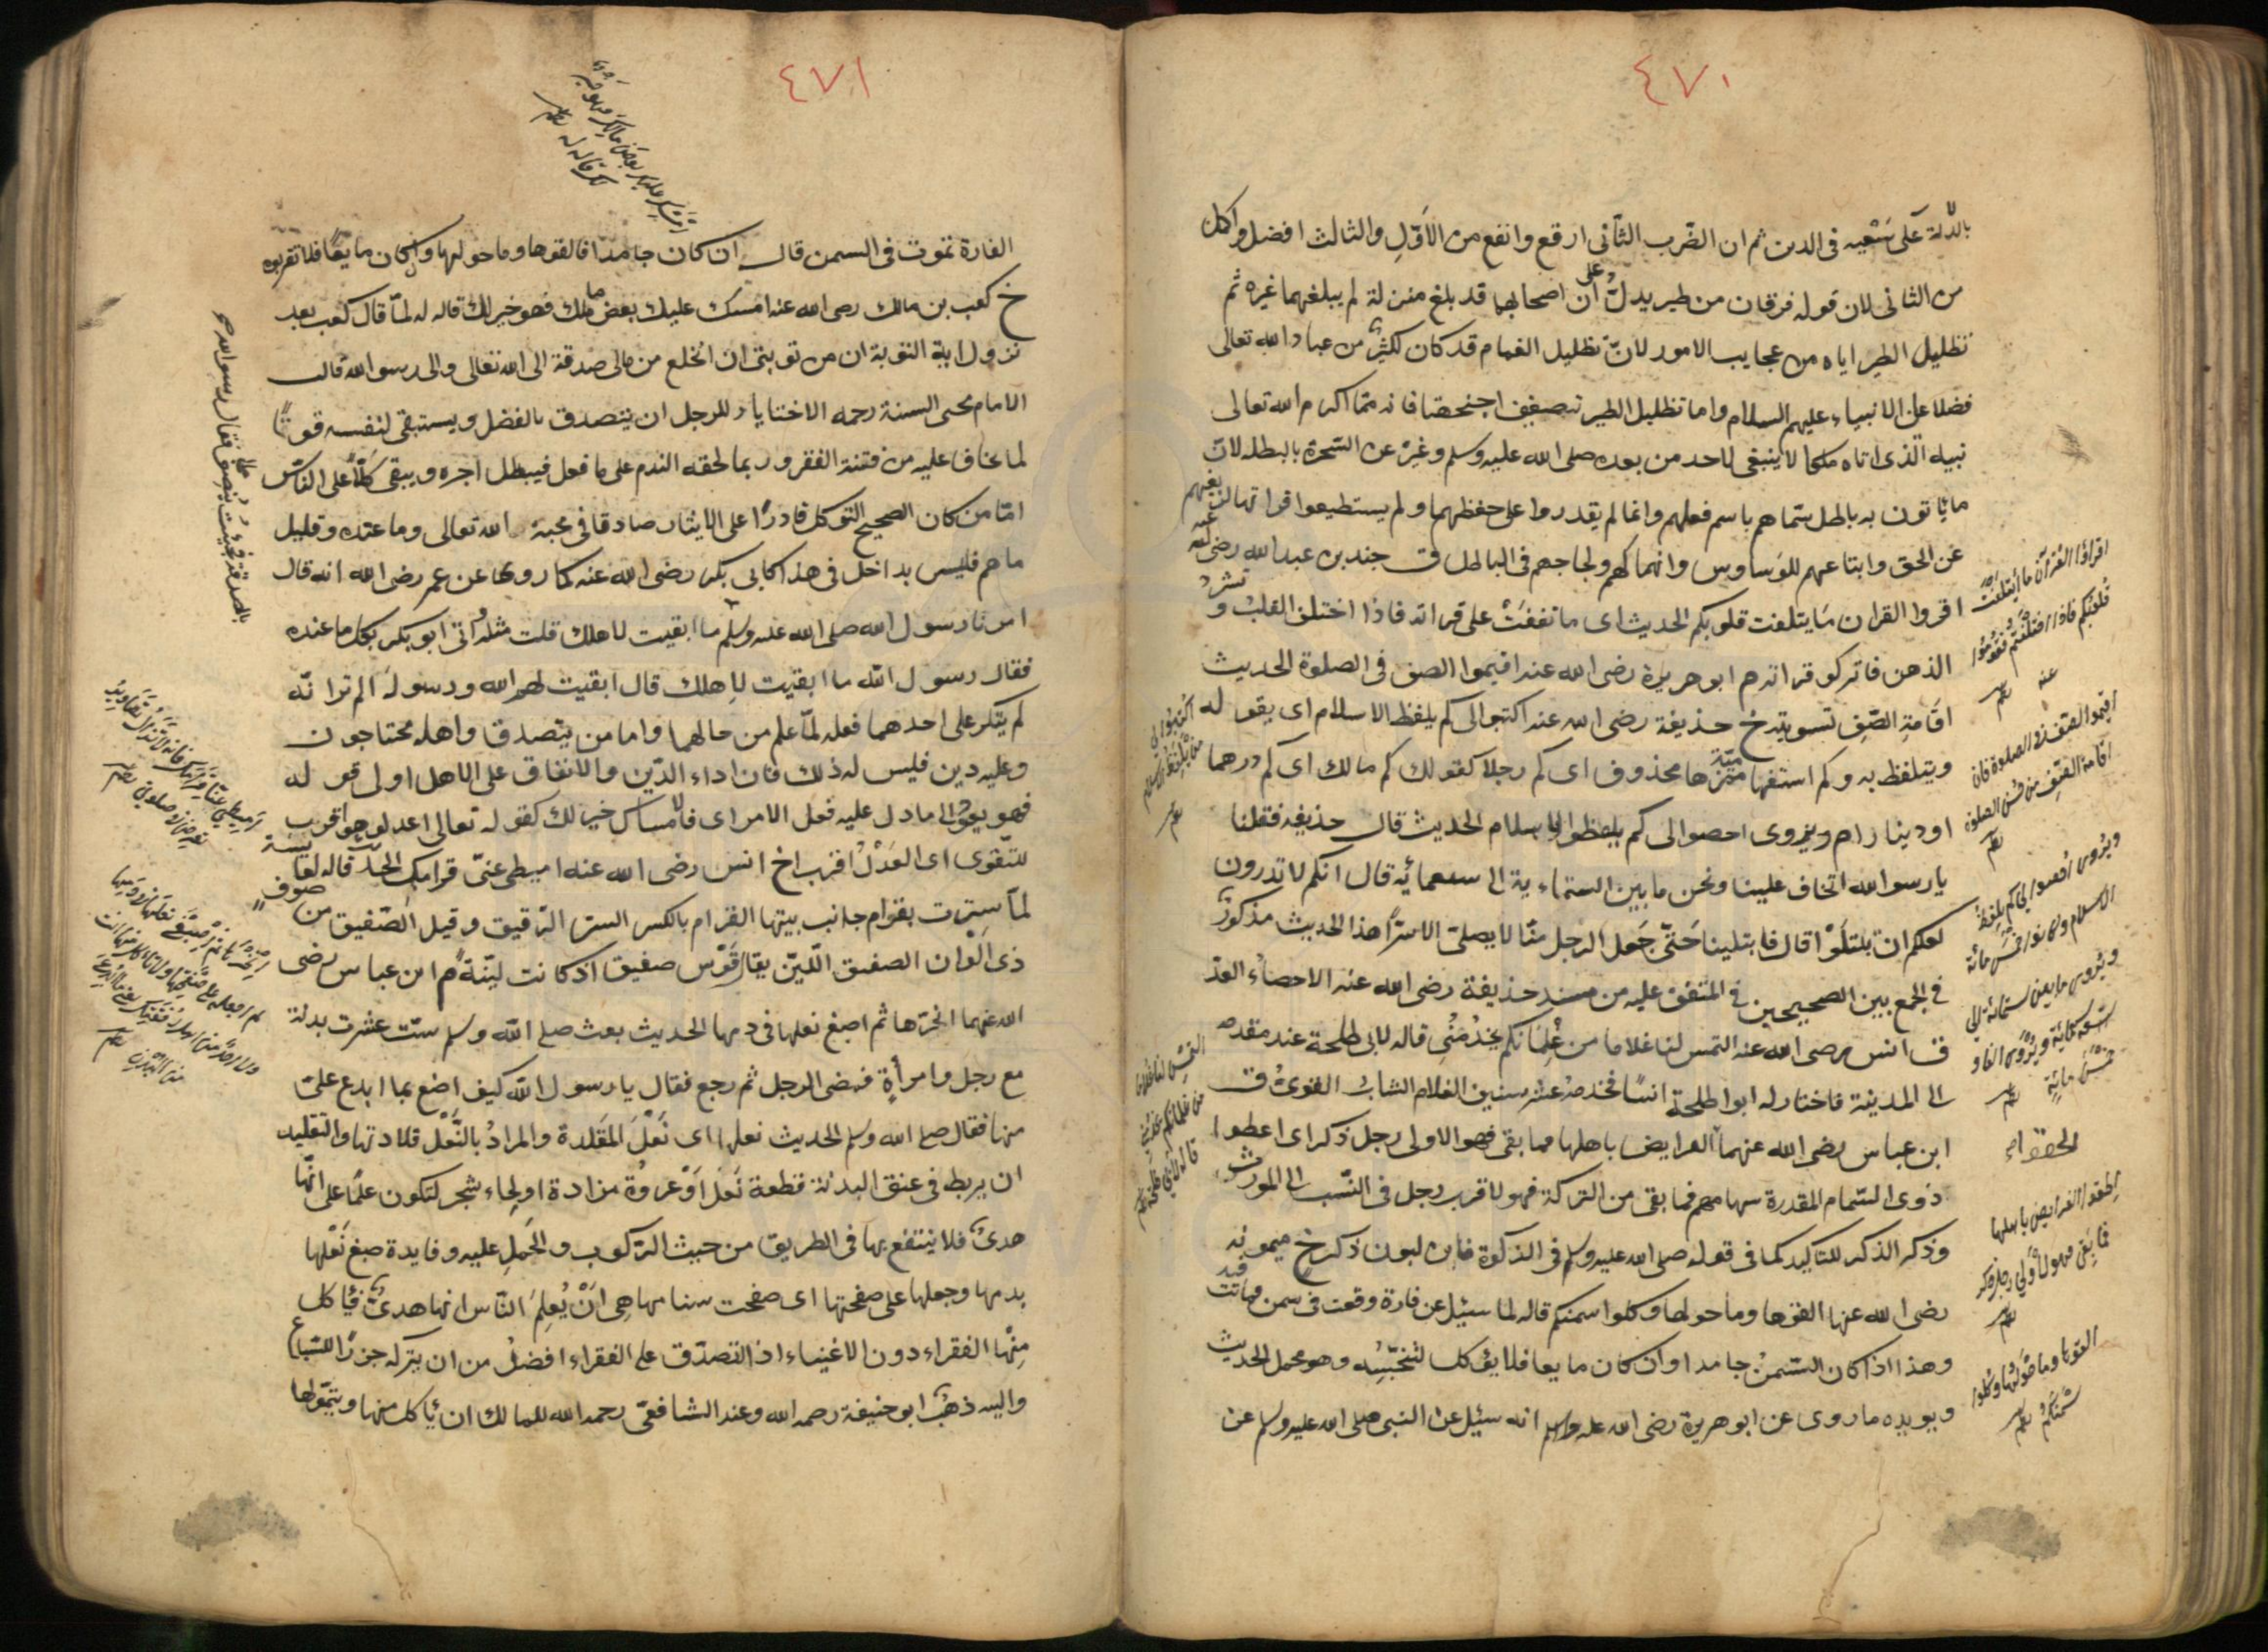 ٤٧٠
بالدلة على سعيه فى الدين ثم ان الضرب الثانى ارفع وانفع من الاول والثالث افضل واكمل
من الثانى لان قوله فرقان من طير يدل على ان اصحابهما قد بلغ منزلة لم يبلغهما غيره ثم
تظليل الطير اياه من عجايب الامور لان تظليل الغمام قد كان لكثير من عباد الله تعالى
فضلا على الانبياء عليهم السلام واما تظليل الطير بتصفيف اجنحتها فانه مما اكرم الله تعالى
نبيه الذى اتاه ملكا لا ينبغى لاحد من بعده صلى الله عليه وسلم وغيره عن السحرة بالبطلة لان
ما ياتون به باطل سماهم باسم فعلهم وانما لم يقدروا على حفظهما ولم يستطيعوا قراتهما لزيغهم
عن الحق واتباعهم للوساوس وانهماكهم ولجاجهم فى الباطل ق جندب بن عبد الله رضى الله عنه
اقروا القران ما ايتلفت قلوبكم الحديث اى ما تفقت على قراته فاذا اختلف القلب و
الذهن فاتركو قراته م ابو هريرة رضى الله عنه اقيموا الصف فى الصلوة الحديث
اقامة الصف تسويته خ حذيفة رضى الله عنه اكتبوا الى كم يلفظ الاسلام اى يقوله
ويتلفظ به وكم استفهامية مميزها محذوف اى كم رجلا كقولك كم مالك اى كم درهما
او دينارا م ويروى احصوا الى كم يلفظ الاسلام الحديث قال حذيفه فقلنا
يا رسول الله اتخاف علينا ونحن ما بين الستماءية الى سبعمائه قال انكم لا تدرون
لعلكم ان تبتلوا قال فابتلينا حتى جعل الرجل منا لا يصلى الا سرا هذا الحديث مذكور
فى الجمع بين الصحيحين فى المتفق عليه من مسند حذيفة رضى الله عنه الاحصاء العد
ق انس رضى الله عنه التمس لنا غلاما من غلمانكم يخدمنى قاله لابى طلحة عند مقدمه
الى المدينة فاختار له ابوا طلحة انسا فخدمه عشر سنين الغلام الشاب القوى ق
ابن عباس رضى الله عنهما الحقوا الفرايض باهلها فما بقى فهو لاولى رجل ذكر اى اعطوا
ذوى السهام المقدرة سهامهم فما بقى من التركة فهو لاقرب رجل فى النسب الى المورث
وذكر الذكر للتاكيد كما فى قوله صلى الله عليه وسلم فى الزكوة فابن لبون ذكر خ ميمونة
رضى الله عنها القوها وما حولها وكلوا سمنكم قاله لما سئيل عن فارة وقعت فى سمن فماتت فيه
وهذا اذا كان السمن جامدا وان كان مايعا فلا يؤكل لتنجسه وهو محمل الحديث
ويويده ما روى عن ابو هريرة رضى الله عنه انه سئيل عن النبى صلى الله عليه وسلم عن
اقراؤا القرآن ما ايتلفت
قلوبكم فاذا اختلفتم فقوموا
عنه
اقيموا الصف فى الصلوة فان
اقامة الصف من حسن الصلوة
اكتبوا لى
من يلفظ بالاسلام
ويروى احصوا لى كم يلفظ
التمس لنا غلاما
من غلمانكم يخدمنى
قاله لابى طلحة
الحقوا
الحقوا الفرايض باهلها
فما بقى فهو لاولى رجل ذكر
القوها وما حولها وكلوا
سمنكم
٤٧١
امسك عليك بعض مالك فهو خير
لك قاله له
الفارة تموت فى السمن قال ان كان جامدا فالقوها وما حولها وان كان مايعا فلا تقربوه
خ كعب بن مالك رضى الله عنه امسك عليك بعض مالك فهو خير لك قاله له لما قال كعب بعد
نزول اية التوبة ان من توبتى ان انخلع من مالى صدقة الى الله تعالى والى رسول الله قال
الامام محيى السنة رحمه الاختيار للرجل ان يتصدق بالفضل ويستبقى لنفسه قوتا
لما يخاف عليه من فتنة الفقر وربما لحقه الندم على ما فعل فيبطل اجره ويبقى كلا على الناس
اما من كان الصحيح التوكل قادرا على الايثار صادقا فى محبة الله تعالى وما عنده وقليل
ما هم فليس بداخل فى هذا كابى بكر رضى الله عنه كما روى عن عمر رضى الله انه قال
امرنا رسول الله صلى الله عليه وسلم ما ابقيت لاهلك قلت مثله اتى ابو بكر بكل ما عنده
فقال رسول الله ما ابقيت لاهلك قال ابقيت لهم الله ورسوله الم تر انه
لم ينكر على احدهما فعله لما علم من حالهما واما من يتصدق واهله محتاجون
وعليه دين فليس له ذلك فان اداء الدين والانفاق على الاهل اولى قوله
فهو يعود الى ما دل عليه فعل الامر اى فالامساك خير لك كقوله تعالى اعدلوا هو اقرب
للتقوى اى العدل اقرب خ انس رضى الله عنه اميطى عنى قرامك الحديث قاله لعايشة
لما سترت بقرام جانب بيتها القرام بالكسر الستر الرقيق وقيل الصفيق من صوف
ذى الوان الصفيق اللين يقال قوس صفيق اذ كانت لينة م ابن عباس رضى
الله عنهما انحرها ثم اصبغ نعلها فى دمها الحديث بعث صلع الله وسلم ست عشرت بدنة
مع رجل وامرأة فمضى الرجل ثم رجع فقال يا رسول الله كيف اصنع بما ابدع على
منها فقال صلع الله وسلم الحديث نعلها اى نعل المقلدة والمراد بالنعل قلادتها والتقليد
ان يربط فى عنق البدنة قطعة نعل او عروة مزادة او لحاء شجر لتكون علما على انها
هدى فلا ينتفع بها فى الطريق من حيث الركوب والحمل عليه وفايدة صبغ نعلها
بدمها وجعلها على صفحتها اى صفحت سنامها هى ان يعلم الناس انها هدى فياكل
منها الفقراء دون الاغنياء اذ التصدق على الفقراء افضل من ان يتركه جزرا للسباع
واليه ذهب ابو حنيفة رحمه الله وعند الشافعى رحمه الله للمالك ان ياكل منها ويتمولها